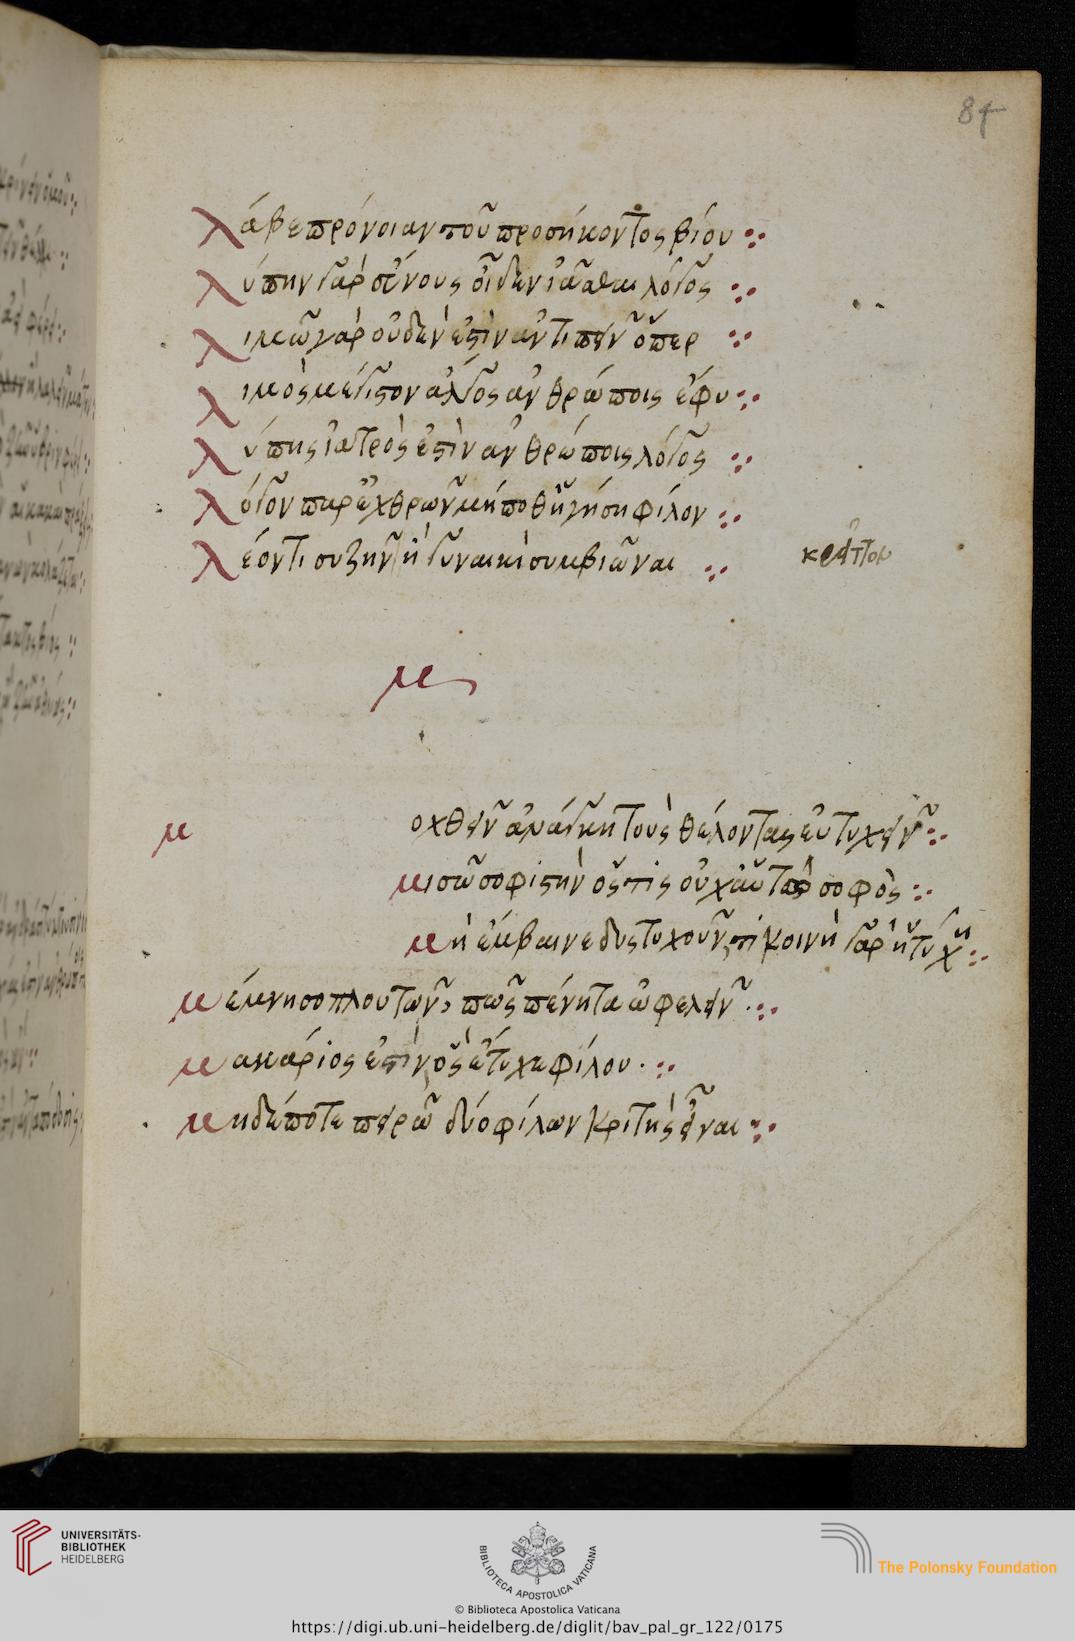 84
λάβε πρόνοιαν τοῦ προσήκοντος βίου
λύπην γὰρ εὔνους οἶδεν ἰᾶσθαι λόγος
λιμῶ γὰρ οὐδέν ἐστὶν ἀντιπεῖν
λιμὸς μέγιστον ἄλγος ἀνθρώποις ἔφυ
λύπης ἰατρὸς ἐστὶν ἀνθρώποις λόγος
λόγον παρ ἐχθρῶν μήποθ ἡγήση φίλον
λέοντι συζῆν ἢ γυναικὶ συμβιῶναι κρεῖττον
μ
μοχθεῖν ἀνάγκη τοὺς θέλοντας εὐτυχεῖν
μισῶ σοφιστὴν ὅστις οὐχ αὑτῶ σοφὸς
μὴ ἔμβαινε δυστυχοῦντι κοινὴ γὰρ ἡ τύχη
μέμνησο πλουτῶν, πῶς πένητα ὠφελεῖν
μακάριος ἐστὶν ὃς ἔτυχε φίλου
μηδέποτε πειρῶ δύο φίλων κριτὴς εἶναι
UNIVERSITÄTS-
BIBLIOTHEK
HEIDELBERG
BIBLIOTECA APOSTOLICA VATICANA
The Polonsky Foundation
© Biblioteca Apostolica Vaticana
https://digi.ub.uni-heidelberg.de/diglit/bav_pal_gr_122/0175